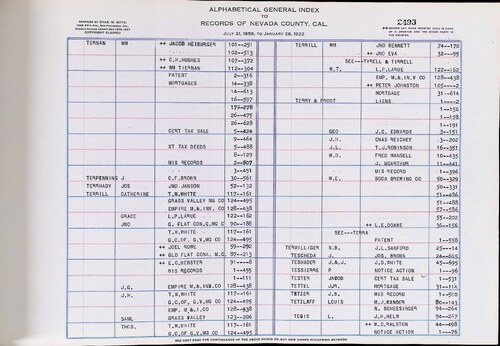 ALPHABETICAL GENERAL INDEX
TO
RECORDS OF NEVADA COUNTY, CAL.
JULY 31, 1856, TO JANUARY 26, 1922
2493
COPYRIGHT CLAIMED
TERNAN WM ++ JACOB HEIBURGER 101--251
102--513
++ G.H.HUGHES 107--372
++ WM TIERNAN 112--304
PATENT 2--316
MORTGAGES 14--338
14--613
16--597
17--278
26--475
26--628
CERT TAX SALE 5--424
9--464
ST TAX DEEDS 5--488
8--129
MIS RECORDS 2--607
3--451
TERPENNING J C.F.BROWN 30--561
TERRHADY JOS JNO.JANSON 52--132
TERRILL CATHERINE T.W.WHITE 117--161
GRASS VALLEY MG CO 124--495
EMPIRE M.& INV. CO 128--438
GRACE L.P.LARUE 122--162
JNO G. FLAT CON.Q.MG CO 90--188
T.W.WHITE 117--161
G.C.OF. G.V.MG CO 124--495
++ JOEL ROWE 59--290
++ GLD FLAT CONS. M.C. 87--213
++ E.C.WEBSTER 91----8
MIS RECORDS 1--455
1--111
J.G. EMPIRE M.& INV.CO 128--438
J.H. T.W.WHITE 117--161
G.C.OF. G.V.MG CO 124--495
EMP. M.& I.CO 128--438
SAML GRASS VALLEY 123--206
THOS. T.W.WHITE 117--161
G.C.OF G.V.MG CO 124--495
TERRILL WM JNO BENNETT 74--170
++ JNO EVA 32--95
SEE---TYRELL & TIRRELL
W.T. L.P.LARUE 122--162
EMP. M.& INV.CO 128--438
++ PETER JOHNSTON 105----2
MORTGAGE 31--614
TERRY & FROST LIENS 1----2
1--156
1--178
1--191
GEO J.E. EDWARDS 3--151
J.H. CHAS REICHEY 3--202
J.L. T.J.ROBINSON 16--351
W.D. FRED MANSELL 10--435
J.MCARTHUR 11--441
MIS RECORDS 1--396
W.E. BOCA BREWING CO 50--329
50--331
51--486
51--488
57--586
55--202
++ L.E.DOANE 36--156
SEE---TERRA
PATENT 1--558
TERRILLIGER N.B. J.L.SANFORD 25--14
TESCHEDA J. JOS. BROWN 24--665
TESHADER J.&J. J.D.WHITE 45--695
TESSIERRE P NOTICE ACTION 1--96
TESTER JACOB CERT TAX SALE 1--531
TETTEL JJR MORTGAGE 31--114
TETZER J.S. MIS RECORD 1--510
TETZLAFF LOUIS M.J.WUNDER 80--143
N.SCHLESINGER 66--264
TEBIS L. J.H.HELM 94--267
++ W.C.RALSTON 44--498
NOTICE ACTION 1--76